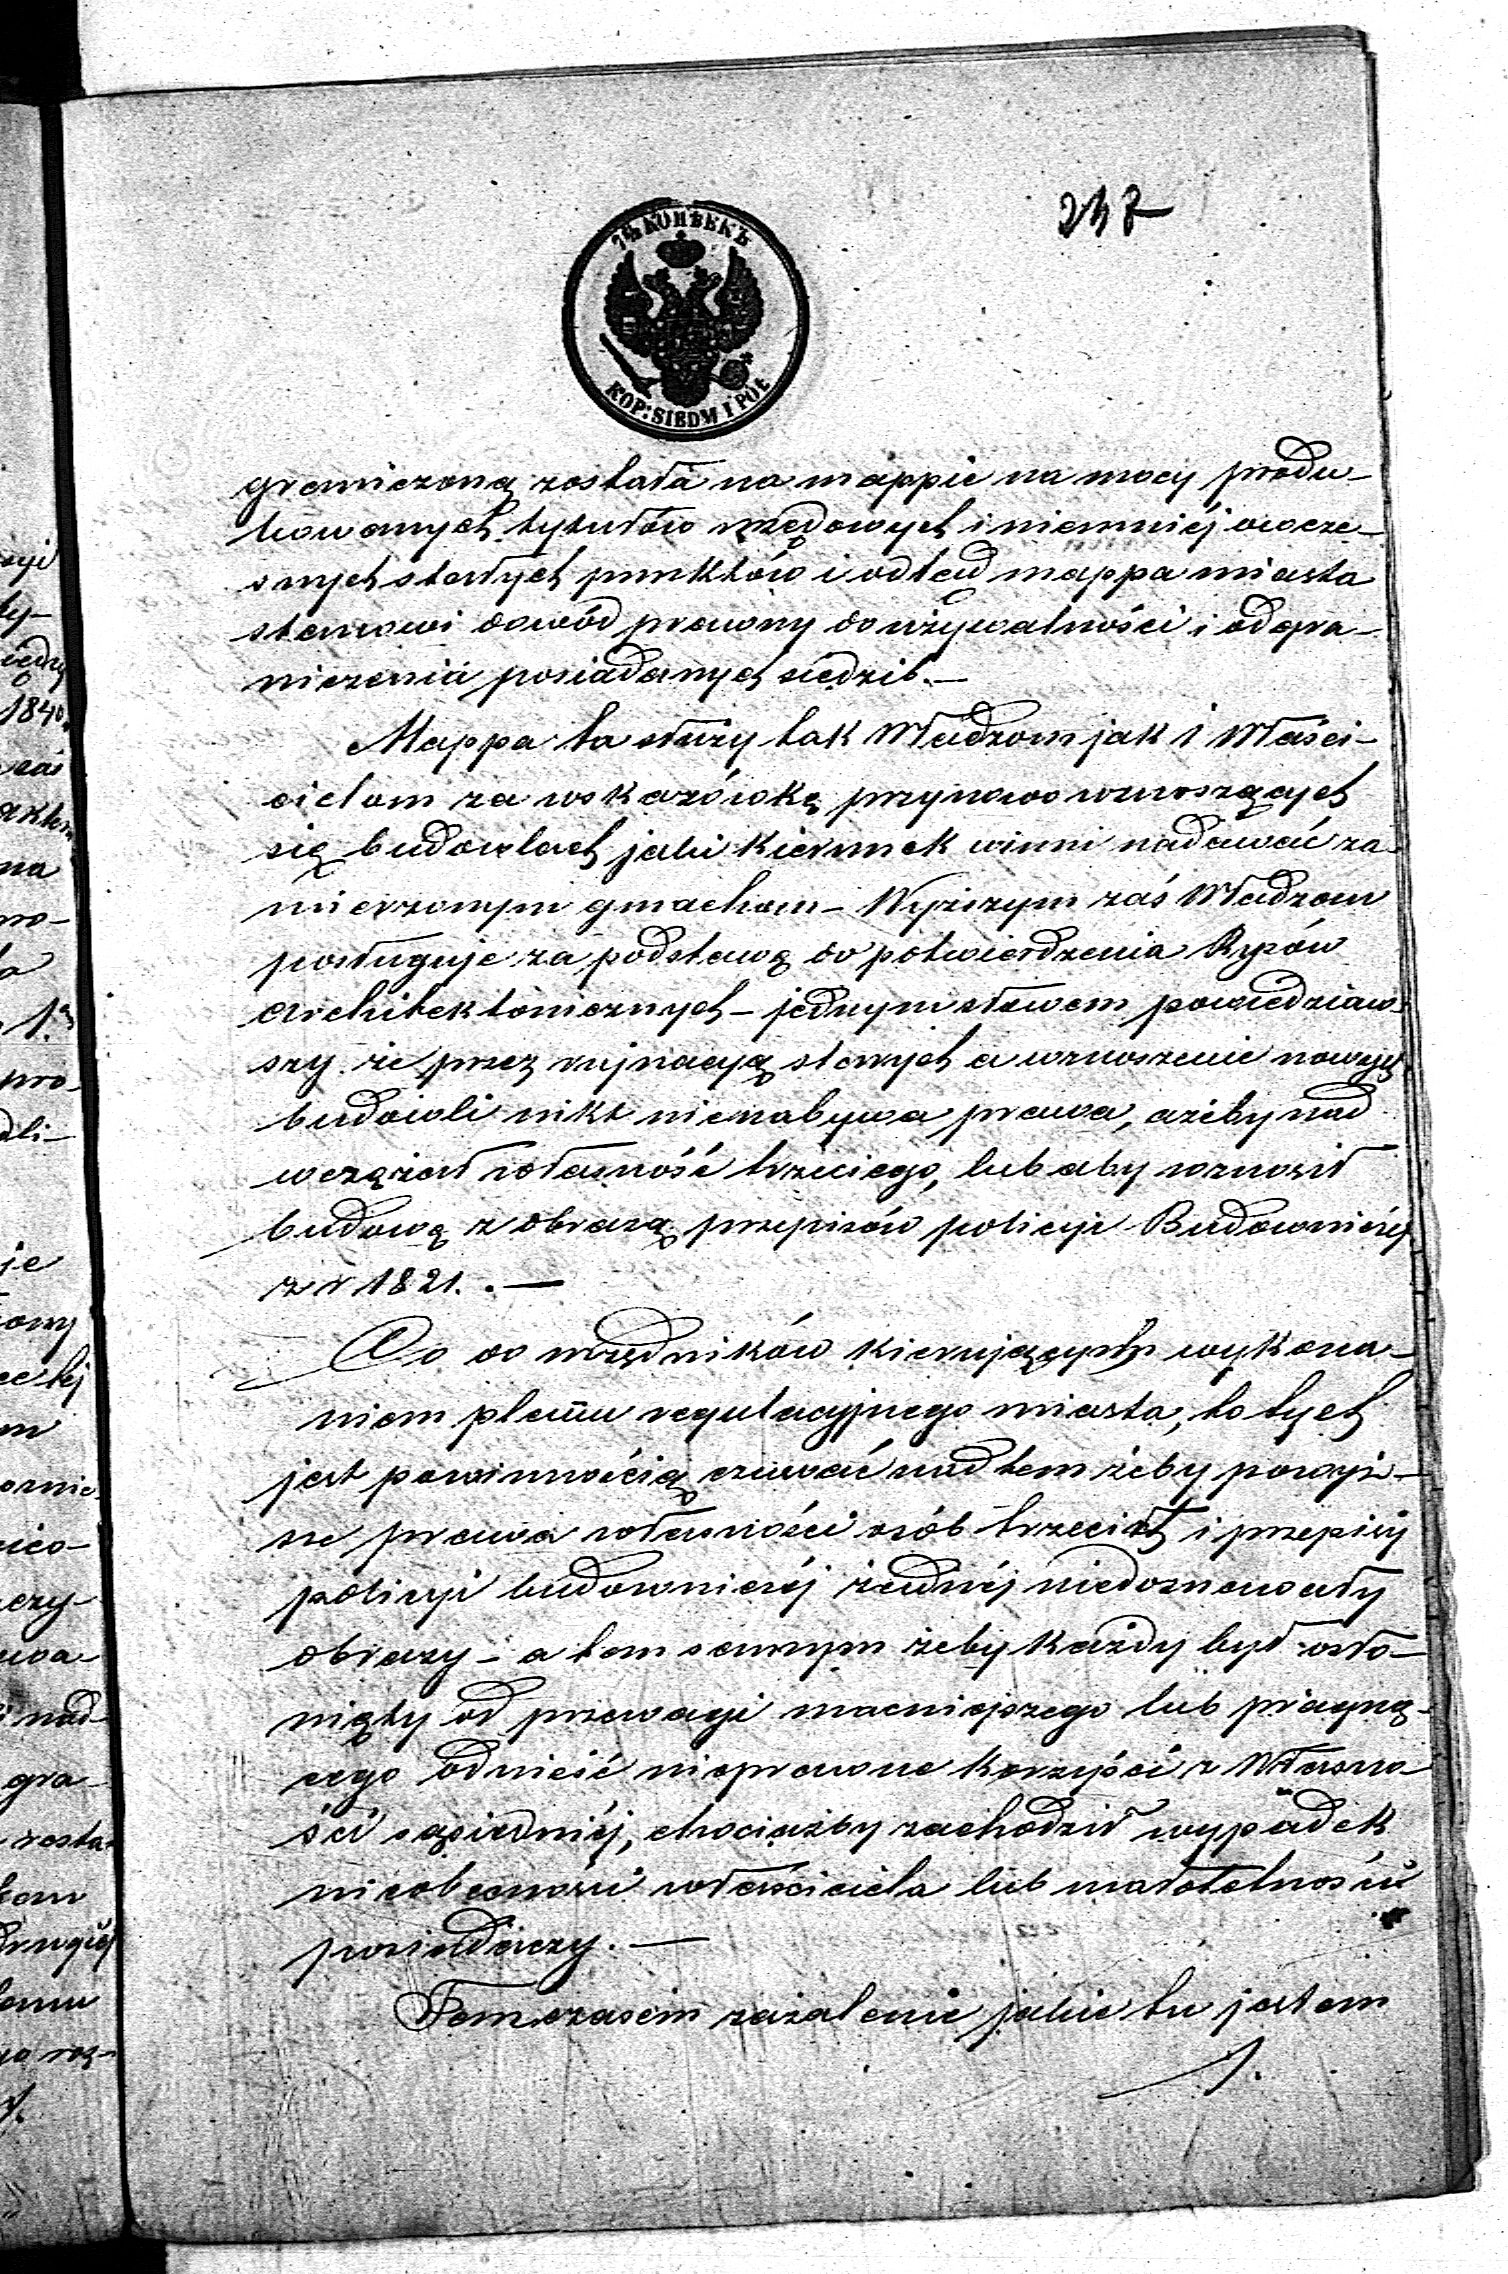 247
7½ КОПѢЕКЪ
KOP: SIEDM I PÓŁ
graniczoną została na mappie na mocy produ-
kowanych tytułów urzędowych i niemniéj owocze-
snych stałych punktów i odtąd mappa miasta
stanowi dowód prawny do używalności i odgra-
niczenia posiadanych siedzib.—
Mappa ta służy tak Władzom jak i Właści-
cielom za wskazówkę przy nowo wznoszących
się budowlach jaki kierunek winni nadawać za-
mierzonym gmachom – Wyższym zaś Władzom
posługuje za podstawę do potwierdzenia Rysów
Architektonicznych – jednym słowem powiedziaw-
szy że przez rujnacyą starych a wznoszenie nowych
budowli nikt nienabywa prawa, ażeby nad
werężał własność trzeciego, lub aby wznosił
budowę z obrazą przepisów policyi Budowniczéj
z r 1821. —
Co do urzędników kierujących wykona-
niem planu regulacyjnego miasta, to tych
jest powinnością czuwać nad tem żeby powyż-
sze prawa własności osób trzecich i przepisy
policyi budowniczéj żadnéj niedoznawały
obrazy – a tem samym żeby każdy był osło-
nięty od przewagi mocniejszego lub pragną-
cego odnieść nieprawne korzyści z Własno-
ści sąsiedniéj, chociażby zachodził wypadek
nieobecności właściciela lub małoletności
posiadaczy. —
Tem czasem zażalenie jakie tu jestem